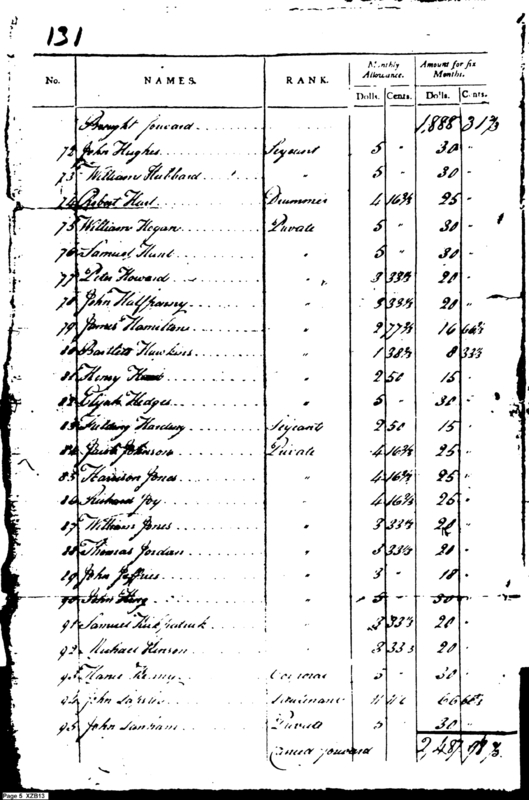 131
No. NAMES. RANK. Monthly Allowance. Amount for six Months.
Dolls. Cents. Dolls. Cents.
Brought forward 1,888 31⅓
72 John Hughes Serjeant 5 " 30 "
73 William Hubbard " 5 " 30 "
74 Robert Hurt Drummer 4 16⅔ 25 "
75 William Hogan Private 5 " 30 "
76 Samuel Hunt " 5 " 30 "
77 Peter Howard " 3 33⅓ 20 "
78 John Halfpenny " 3 33⅓ 20 "
79 James Hamilton " 2 77⅔ 16 66⅔
80 Bartlett Hawkins " 1 38⅔ 8 33⅓
81 Henry " 2 50 15 "
82 Elijah Hedges " 5 " 30 "
83 Hardway Serjeant 2 50 15 "
84 Johnson Private 4 16⅔ 25 "
85 Harrison Jones " 4 16⅔ 25 "
86 Richard Joy " 4 16⅔ 25 "
87 William Jones " 3 33⅓ 20 "
88 Thomas Jordan " 3 33⅓ 20 "
89 John Jeffries " 3 " 18 "
90 John King " 5 " 30 "
91 Samuel Kirkpatrick " 3 33⅓ 20 "
92 Michael " 3 33⅓ 20 "
93 5 " 30 "
94 John 66 66⅔
95 John Private 5 30 "
Carried forward 2,487 98⅓
Page 5 XZB13